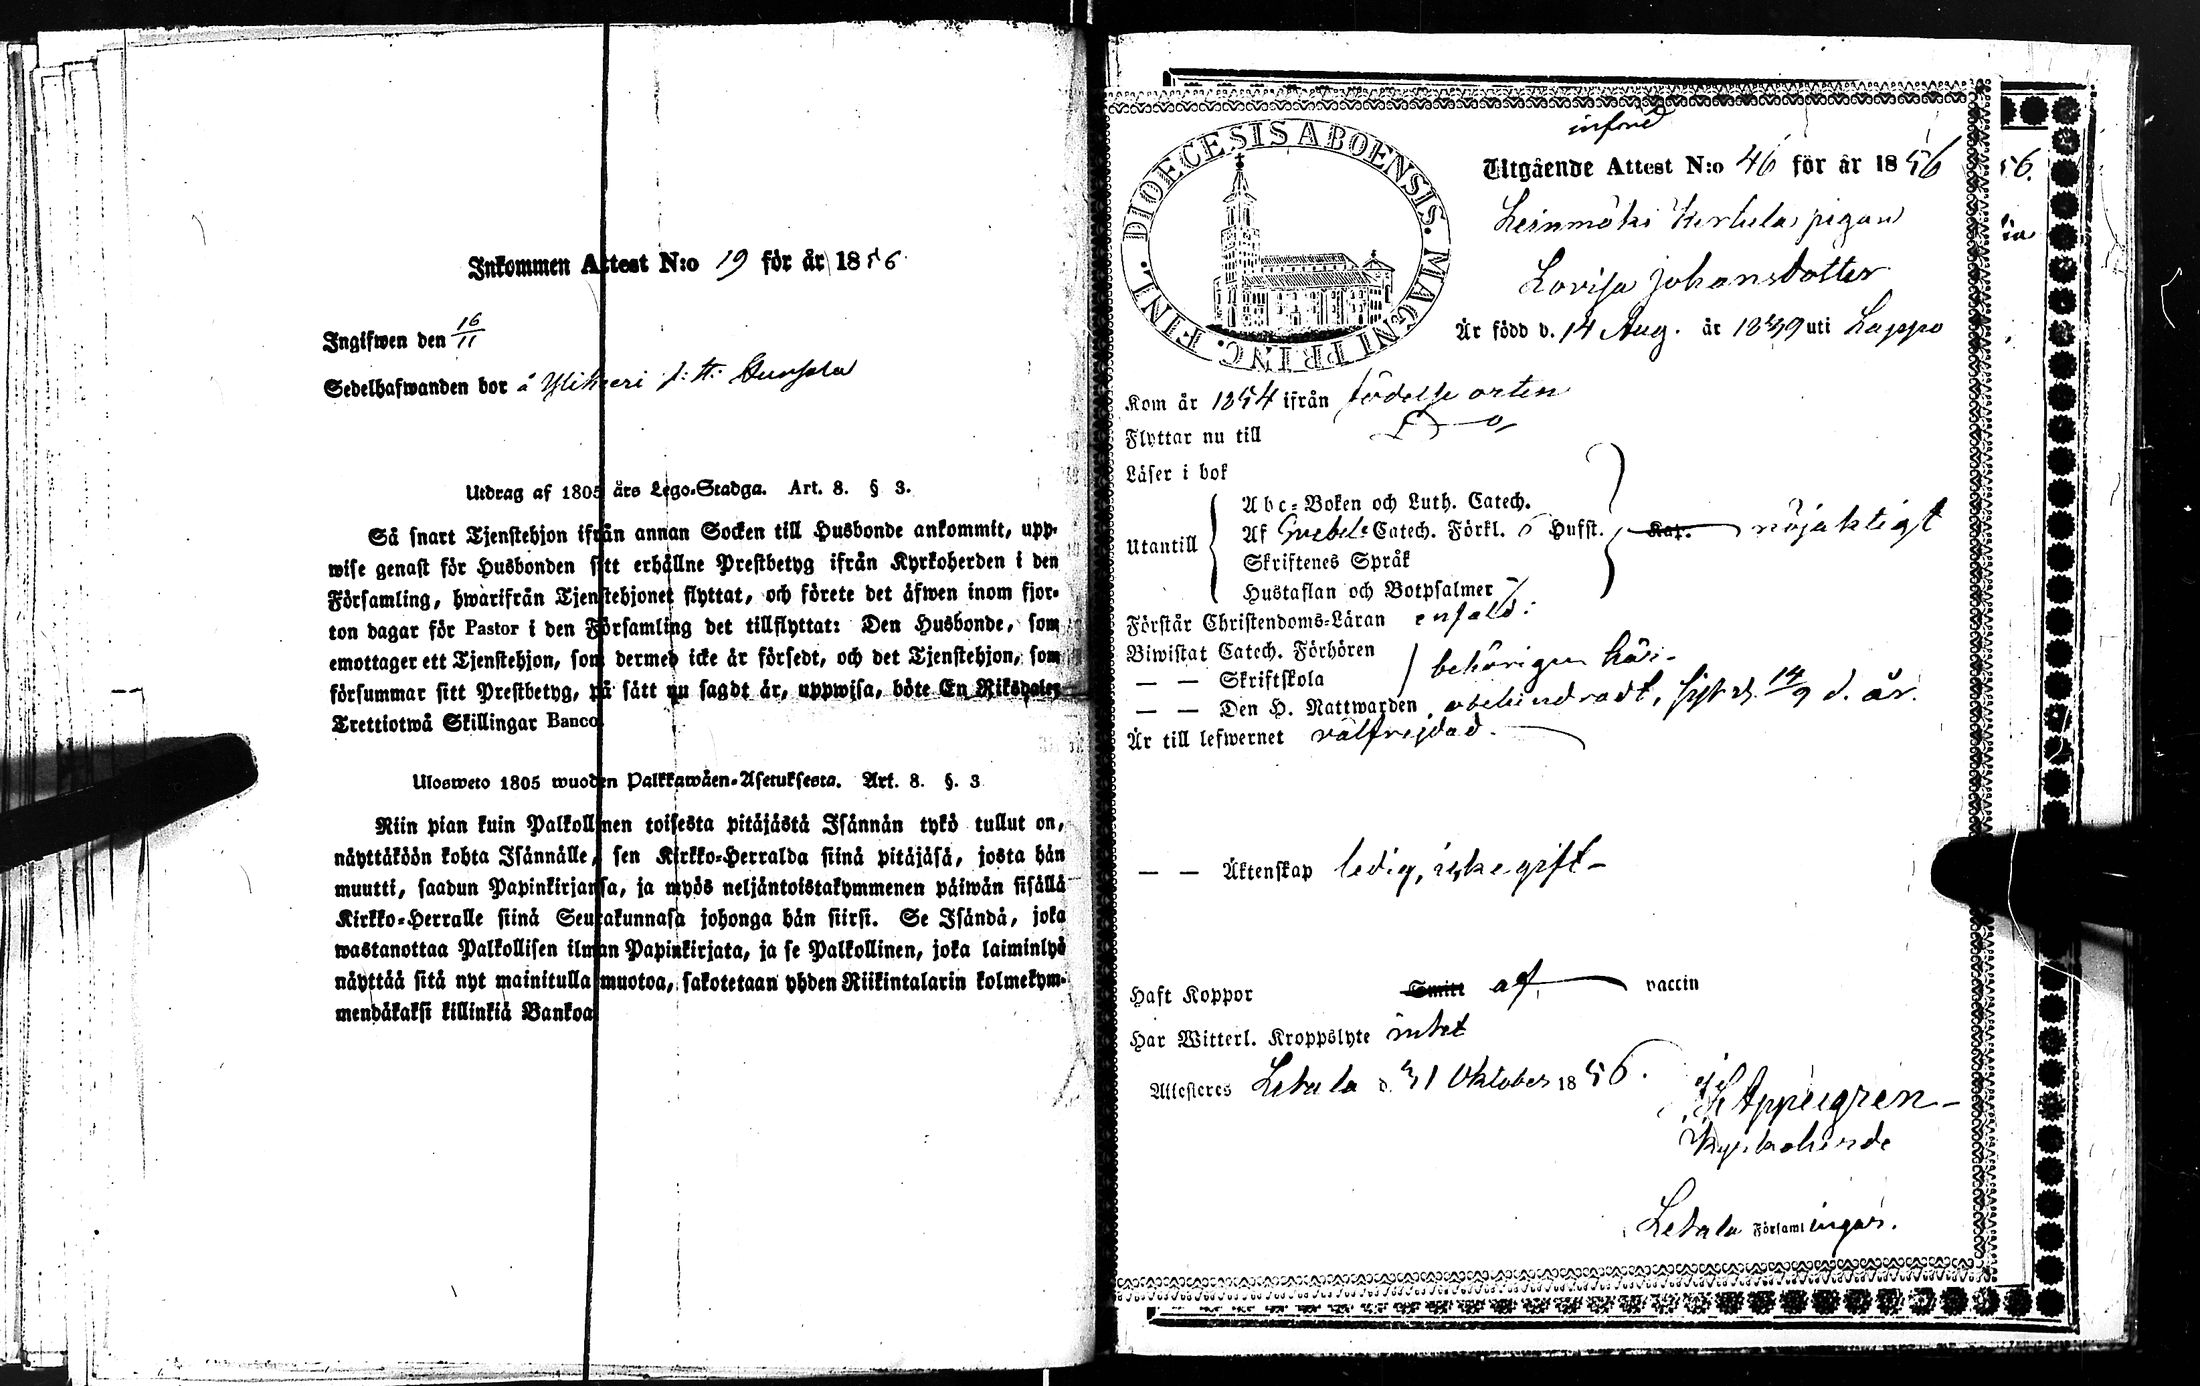 Inkommen Attest N:o 19 för år 1856.
Ingifwen den 16/11
Sedelhafwanden bor å
Utdrag af 1805 års Lego-Stadga. Art. 8. § 3.
Så snart Tjenstehjon ifrån annan Socken till Husbonde ankommit, upp-
wise genast för Husbonden sitt erhållne Prestbetyg ifrån Kyrkoherden i den
Församling, hwarifrån Tjenstehjonet flyttat, och förete det äfwen inom fjor-
ton dagar för Pastor i den Församling det tillflyttat: Den Husbonde, som
emottager ett Tjenstehjon, som dermed icke är försedt, och det Tjenstehjon, som
försummar sitt Prestbetyg, på sätt nu sagdt är, uppwisa, böte En Riksdaler
Trettiotwå Skillingar Banco.
Ulosweto 1805 wuoden Palkkawäen-Asetuksesta. Art. 8. §. 3
Niin pian kuin Palkollinen toisesta pitäjästä Isännän tykö tullut on,
näyttäköön kohta Isännälle, sen Kirkko-Herralda siinä pitäjäsä, josta hän
muutti, saadun Papinkirjansa, ja myös neljäntoistakymmenen päiwän sisällä
Kirkko-Herralle siinä Seurakunnasa johonga hän siirsi. Se Isändä, joka
wastanottaa Palkollisen ilman Papinkirjata, ja se Palkollinen, joka laiminlyö
näyttää sitä nyt mainitulla muotoa, sakotetaan yhden Riikintalarin kolmekym-
mendäkaksi killinkiä Bankoa.
DIOECESIS ABOENSIS. MAGNI PRINC. FINL.
införd
Utgående Attest N:o 46 för år 1856
Leinmäki Kerkula pigan
Lovisa Johansdotter
Är född d. 14 Aug. år 1839 uti Lappo
Kom år 1854 ifrån födelse orten
Flyttar nu till D:o
Läser i bok
Utantill
Abc-Boken och Luth. Catech.
Af Grebels Catech. Förkl. 5 Hufst. nöjaktigt
Skriftenes Språk
Hustaflan och Botpsalmer
Förstår Christendoms-Läran enfald:
Biwistat Catech. Förhören
— — Skriftskola behörigen
— — Den H. Nattwarden obehindradt, 14/9 d. år.
Är till lefwernet välfrejdad.
— — Äktenskap ledig, icke gift
Haft Koppor Smitt af vaccin
Har Witterl. Kroppslyte intet
Attesteras Letala d. 31 Oktober 1856.
Appelgren
Kyrkoherde
Letala Församlingar.
56.